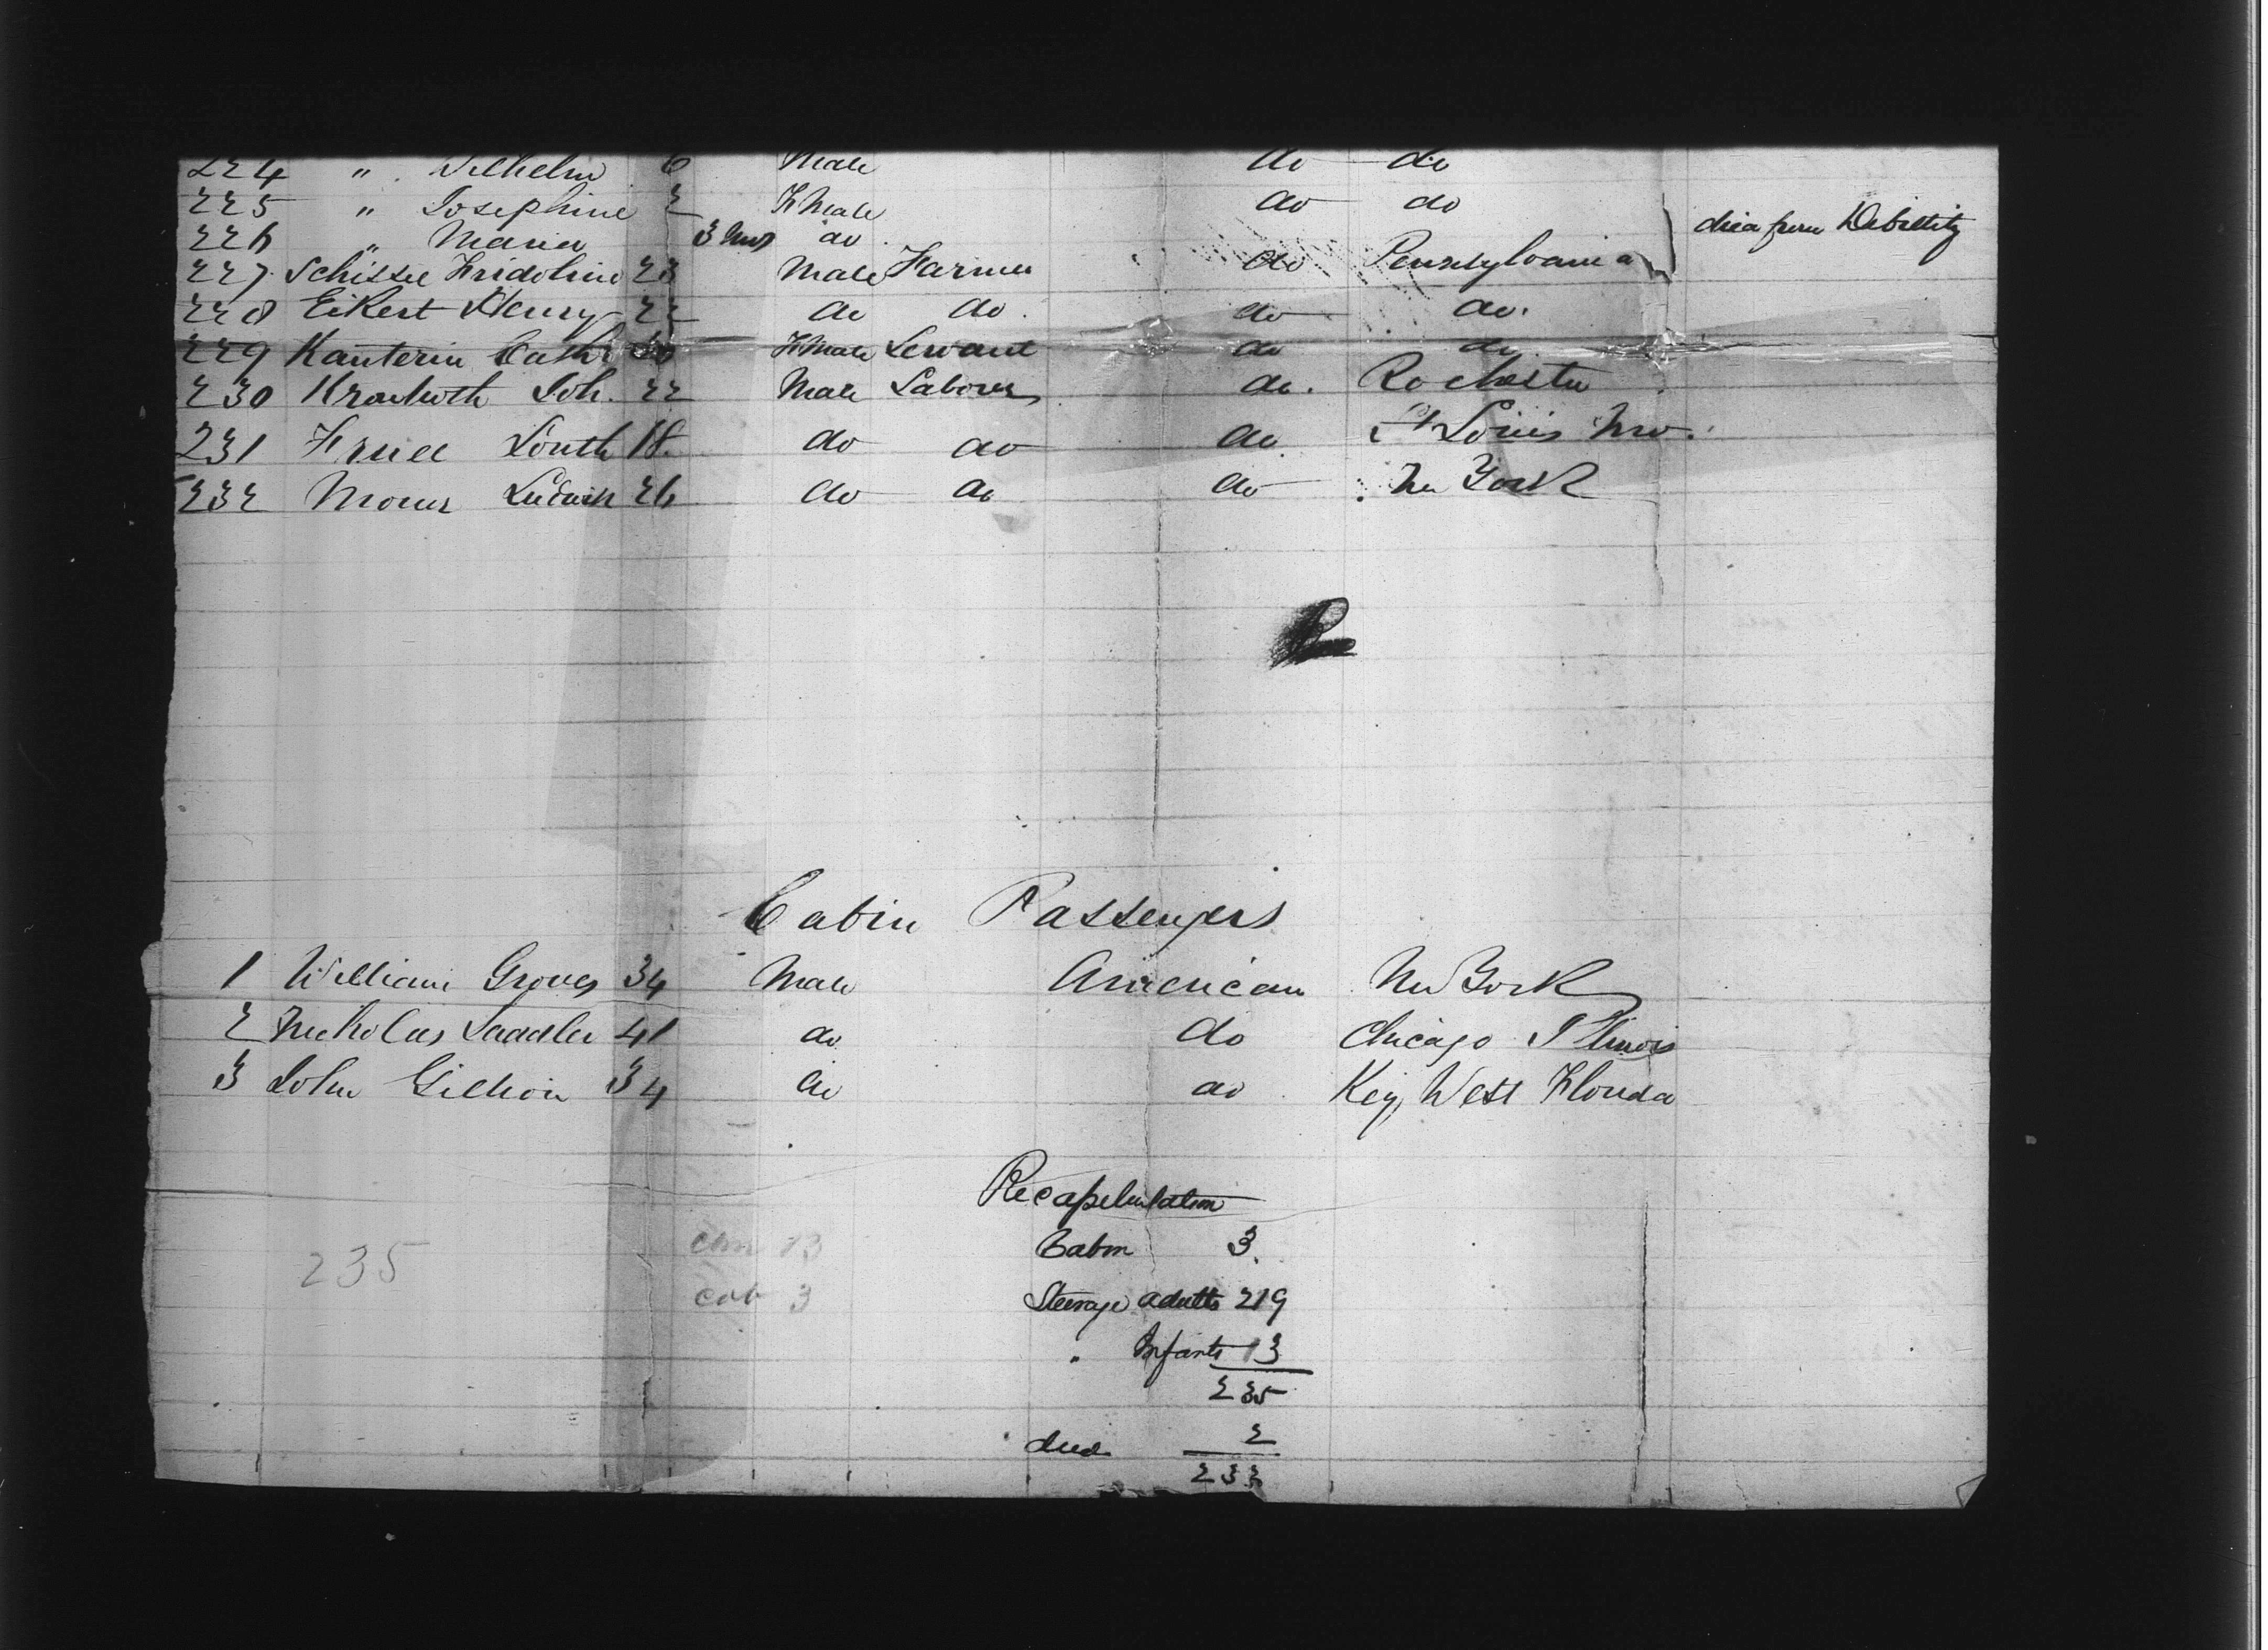 224 " Wilhelm 6 Male do do
225 " Josephine 2 Fmale do do
226 " Maria 3 Mos do died from Debility
227 Schissee Fridolin 23 Male Farmer do Pensylvania
228 Eikert Henry 22 do do do do.
229 Kanterin Cathr 20 Fmale Servant do do
230 Joh. 22 Male Laborer do. Rochester
231 18. do do do St Louis Mo.
232 Ludwih 26 do do do New York
Cabin Passengers
1 William Groves 34 Male American New York
2 Nicholas Saadler 41 do do Chicago Illinois
3 John 34 do do Key West Florida
Recapitulation
Cabin 3.
235
13
cab 3
Steerage adults 219
" Infants 13
235
died 2
233